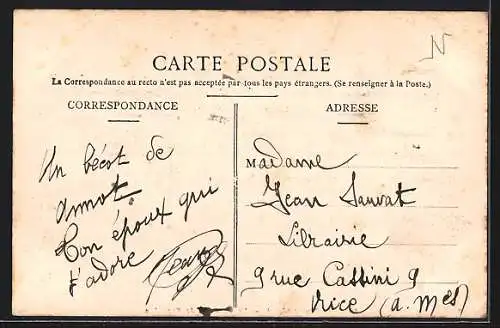 N
CARTE POSTALE
La Correspondance au recto n'est pas acceptée par tous les pays étrangers. (Se renseigner à la Poste.)
CORRESPONDANCE
ADRESSE
Un bécot de
Annot
Ton époux qui
t'adore
Jean
Madame
Jean Sauvat
Librairie
9 rue Cassini 9
Nice (a. Mes)